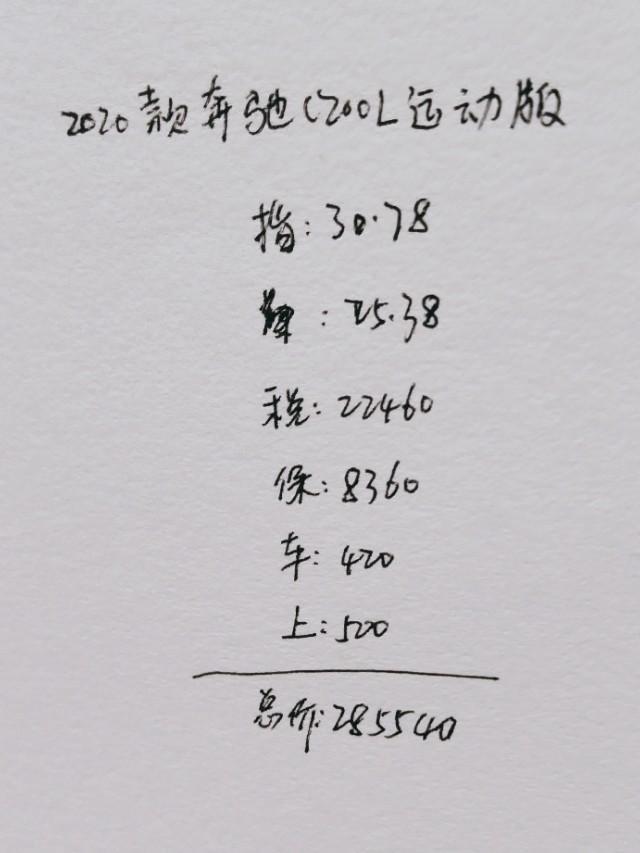 2020款奔驰C200L运动版
指:30.78
裸:25.38
税:22460
保:8360
车:420
上:500
总价:285540